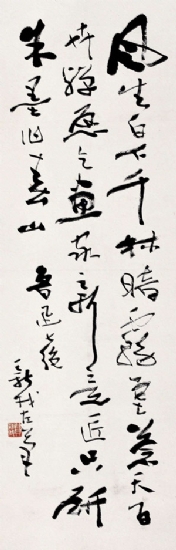 風生白下千林暗霧塞蒼天百
卉殫願乞畫家新意匠只研
朱墨作春山 魯迅
新我左筆